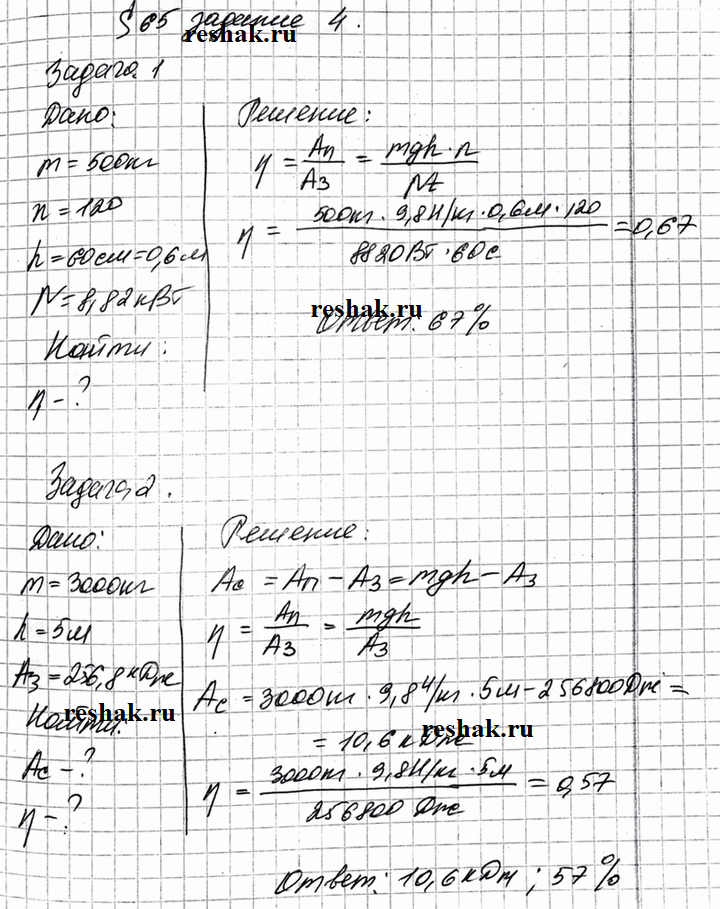 § 65 задание 4.
reshak.ru
Задача 1
Дано:
m = 500кг
n = 120
h = 60см = 0,6м
N = 8,82кВт
Найти:
η - ?
Решение:
η = Aп/Aз = mgh·n/Nt
η = 500кг · 9,8Н/кг · 0,6м · 120 / 8820Вт · 60с = 0,67
reshak.ru
Ответ: 67%
Задача 2.
Дано:
m = 3000кг
h = 5м
Aз = 256,8кДж
Найти:
reshak.ru
Ac - ?
η - ?
Решение:
Ac = Aп - Aз = mgh - Aз
η = Aп/Aз = mgh/Aз
Ac = 3000кг · 9,8Н/кг · 5м - 256800Дж =
reshak.ru
= 10,6кДж
η = 3000кг · 9,8Н/кг · 5м / 256800 Дж = 0,57
Ответ: 10,6кДж ; 57%